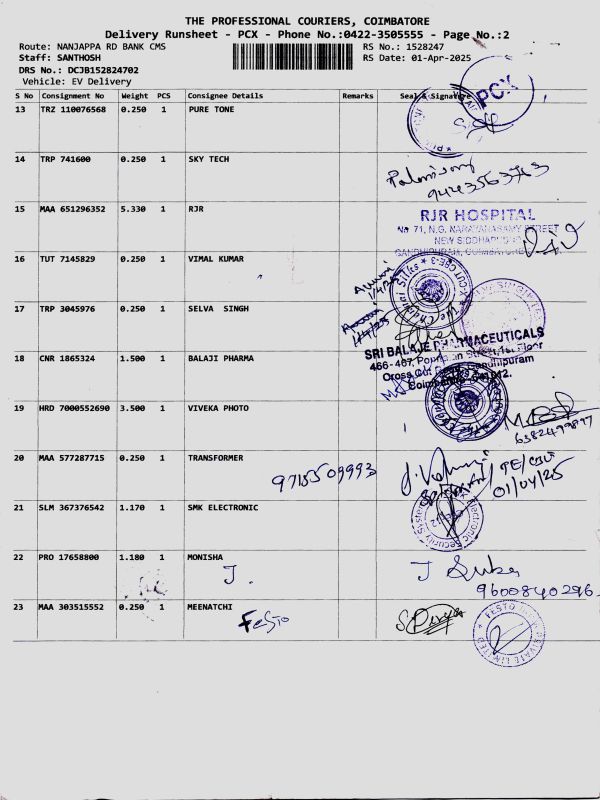 THE PROFESSIONAL COURIERS, COIMBATORE
Delivery Runsheet - PCX - Phone No.:0422-3505555 - Page No.:2
Route: NANJAPPA RD BANK CMS RS No.: 1528247
Staff: SANTHOSH RS Date: 01-Apr-2025
DRS No.: DCJB152824702
Vehicle: EV Delivery
S No Consignment No Weight PCS Consignee Details Remarks Seal & Signature
PCX
13 TRZ 110076568 0.250 1 PURE TONE
14 TRP 741600 0.250 1 SKY TECH
9443563763
15 MAA 651296352 5.330 1 RJR
RJR HOSPITAL
No 71, N.G. NARAYANASAMY STREET
NEW SIDDHAPUDUR
GANDHIPURAM, COIMBATORE
16 TUT 7145829 0.250 1 VIMAL KUMAR
1/4/25
17 TRP 3045976 0.250 1 SELVA SINGH
1/4/25
SRI BALAJE PHARMACEUTICALS
18 CNR 1865324 1.500 1 BALAJI PHARMA
19 HRD 7000552690 3.500 1 VIVEKA PHOTO
6382499897
20 MAA 577287715 0.250 1 TRANSFORMER
9715509993
01/04/25
21 SLM 367376542 1.170 1 SMK ELECTRONIC
Electronic Security Systems
22 PRO 17658800 1.180 1 MONISHA
J. J
9600840296
23 MAA 303515552 0.250 1 MEENATCHI
Festo
FESTO PRIVATE LIMITED